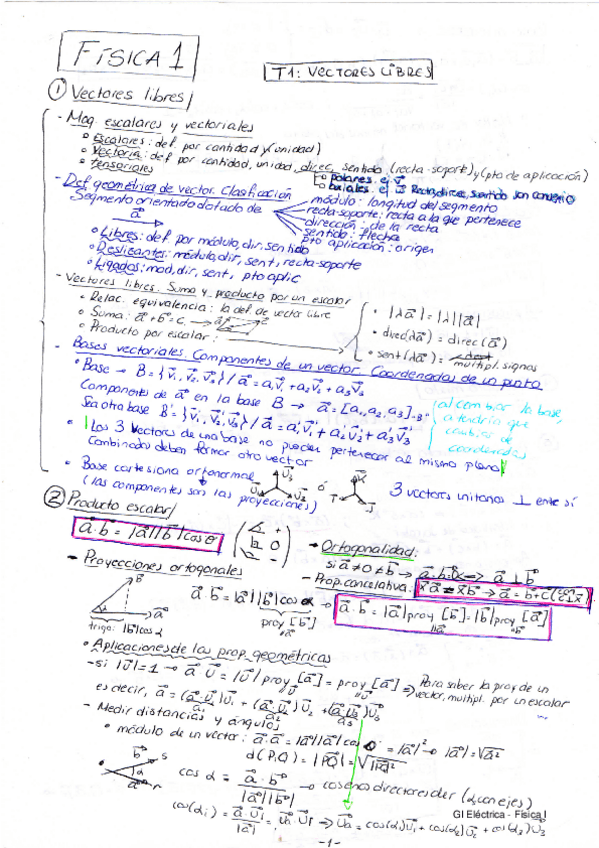 FÍSICA 1
T1: VECTORES LIBRES
① Vectores libres
- Mag. escalares y vectoriales
• Escalares: def. por cantidad y (unidad)
• Vectoria: def por cantidad, unidad, direc, sentido (recta-soporte) y (pto de aplicación)
• tensoriales
polares
axiales
sentido son convenio
- Def geométrica de vector. Clasificación
Segmento orientado dotado de
módulo: longitud del segmento
recta-soporte: recta a la que pertenece
dirección: de la recta
sentido: flecha
pto aplicación: origen
a⃗
• Libres: def. por módulo, dir, sentido
• Deslizantes: módulo, dir, sent, recta-soporte
• Ligados: mod, dir, sent, pto aplic
- Vectores libres. Suma y producto por un escalar
• Relac. equivalencia: la def. de vector libre
• Suma: a⃗ + b⃗ = c⃗
• Producto por escalar:
• |λa⃗| = |λ||a⃗|
• direc(λa⃗) = direc(a⃗)
• sent(λa⃗) = multipl. signos
- Bases vectoriales. Componentes de un vector. Coordenadas de un punto
• Base → B = {v⃗₁, v⃗₂, v⃗₃} / a⃗ = a₁v⃗₁ + a₂v⃗₂ + a₃v⃗₃
Componentes de a⃗ en la base B → a⃗ = [a₁, a₂, a₃]B
Sea otra base B' = {v⃗₁', v⃗₂', v⃗₃'} / a⃗ = a₁'v⃗₁' + a₂'v⃗₂' + a₃'v⃗₃'
al cambiar la base,
a tendría que
cambiar de
coordenadas
• Los 3 vectores de una base no pueden pertenecer al mismo plano
Combinados deben formar otro vector
• Base cartesiana ortonormal
(las componentes son las proyecciones)
3 vectores unitarios ⊥ entre sí
② Producto escalar
a⃗·b⃗ = |a⃗||b⃗|cos θ
- Ortogonalidad:
si a⃗ ≠ 0 ≠ b⃗ → a⃗·b⃗ = 0 <=> a⃗ ⊥ b⃗
- Prop. cancelativa:
- Proyecciones ortogonales
b⃗
a⃗
trigo: |b⃗|cos α
a⃗·b⃗ = |a⃗||b⃗|cos α →
proy [b⃗]
a⃗·b⃗ = |a⃗| proy [b⃗] = |b⃗| proy [a⃗]
• Aplicaciones de las prop. geométricas
- si |u⃗| = 1 → a⃗·u⃗ = |u⃗| proy [a⃗] = proy [a⃗] ⇒ Para saber la proy de un
vector, multipl. por un escalar
es decir, a⃗ = (a⃗·u⃗₁)u⃗₁ + (a⃗·u⃗₂)u⃗₂ + (a⃗·u⃗₃)u⃗₃
a₁ a₂ a₃
- Medir distancias y ángulos
• módulo de un vector: a⃗·a⃗ = |a⃗||a⃗|cos 0 = |a⃗|² → |a⃗| = √a⃗²
d(P,Q) = |PQ⃗| = √PQ⃗²
b⃗ s
α
a⃗ r
cos α = a⃗·b⃗ / |a⃗||b⃗| → cosenos directores der (α con ejes)
cos(αi) = a⃗·u⃗i / |a⃗| = u⃗a·u⃗i ⇒ u⃗a = cos(α₁)u⃗₁ + cos(α₂)u⃗₂ + cos(α₃)u⃗₃
GI Eléctrica - Física I
-1-